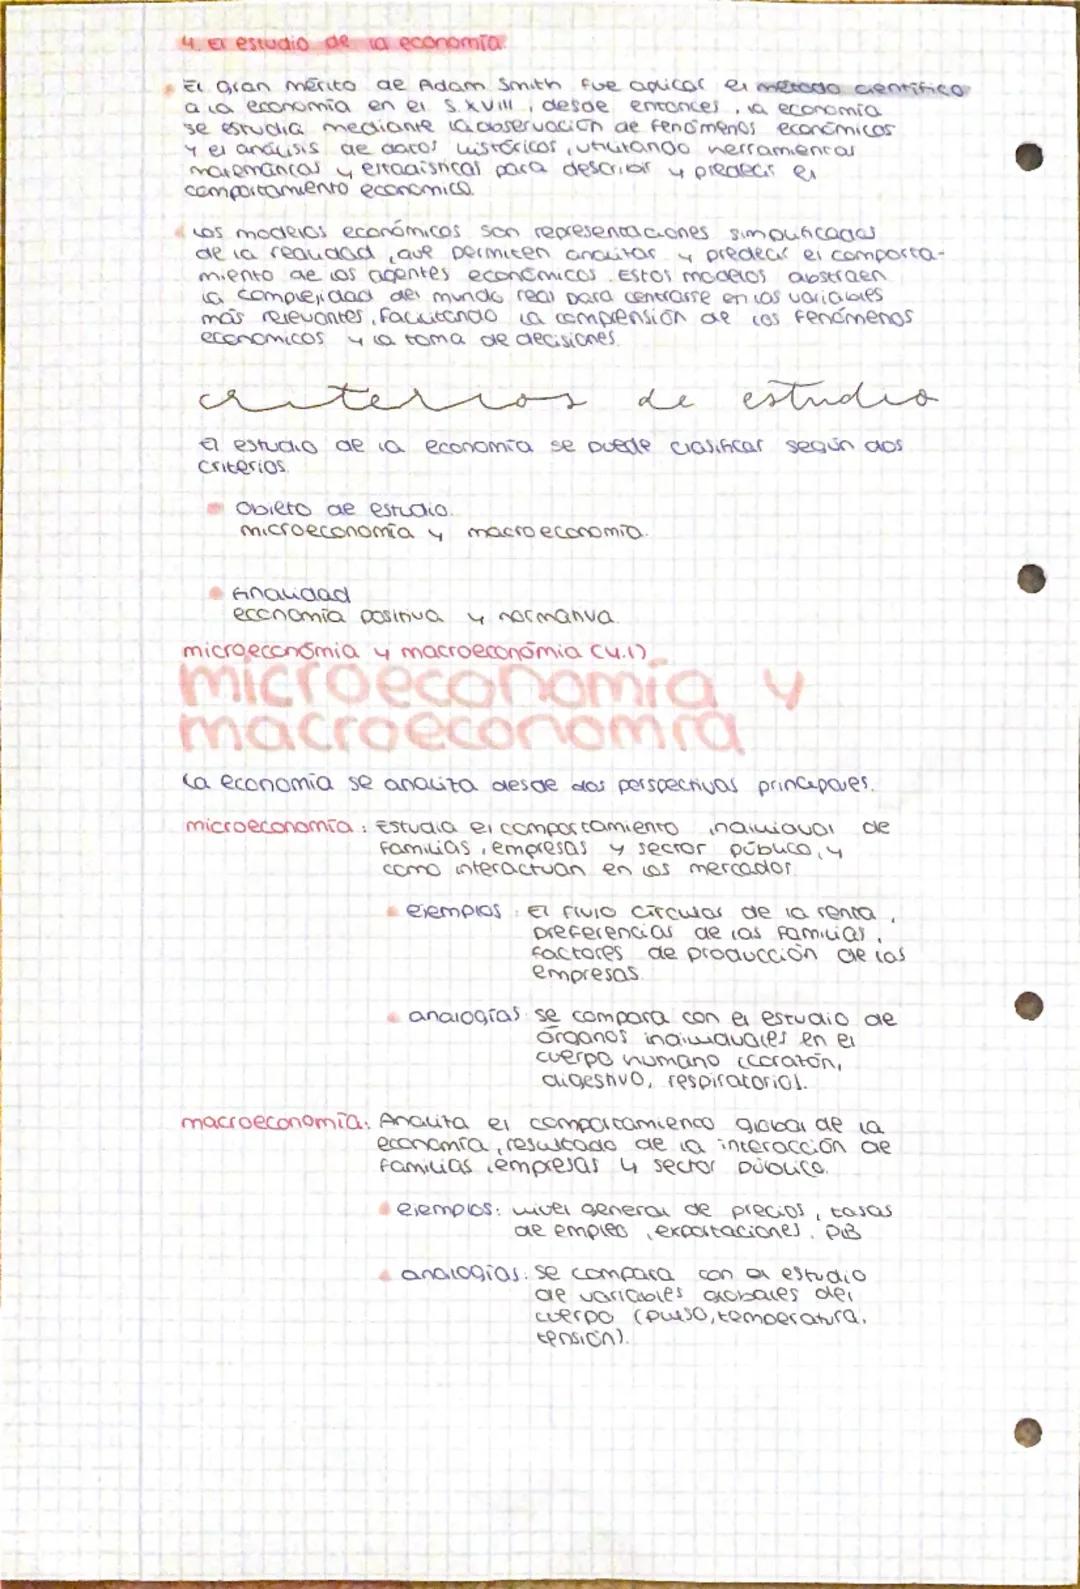 4. El estudio de la economía.
El gran mérito de Adam Smith fue aplicar el método científico
a la economía en el S.XVIII, desde entonces, la economía
se estudia mediante la observación de fenómenos económicos
y el análisis de datos históricos, utilizando herramientas
matemáticas y estadísticas para describir y predecir el
comportamiento económico.
Los modelos económicos son representaciones simplificadas
de la realidad, que permiten analizar y predecir el comporta-
miento de los agentes económicos. Estos modelos abstraen
la complejidad del mundo real para centrarse en las variables
más relevantes, facilitando la comprensión de los fenómenos
económicos y la toma de decisiones.
criterios de estudio
El estudio de la economía se puede clasificar según dos
criterios.
Objeto de estudio.
microeconomía y macroeconomía.
Finalidad
economía positiva y normativa.
microeconomía y macroeconomía (4.1)
microeconomía y
macroeconomía
La economía se analiza desde dos perspectivas principales.
microeconomía: Estudia el comportamiento individual de
familias, empresas y sector público, y
como interactuan en los mercados.
ejemplos: El flujo circular de la renta,
preferencias de las familias,
factores de producción de las
empresas.
analogías: se compara con el estudio de
órganos individuales en el
cuerpo humano (corazón,
digestivo, respiratorio).
macroeconomía: Analiza el comportamiento global de la
economía, resultado de la interacción de
familias, empresas y sector público.
ejemplos: nivel general de precios, tasas
de empleo, exportaciones, PIB
analogías: se compara con el estudio
de variables globales del
cuerpo (pulso, temperatura,
tensión).